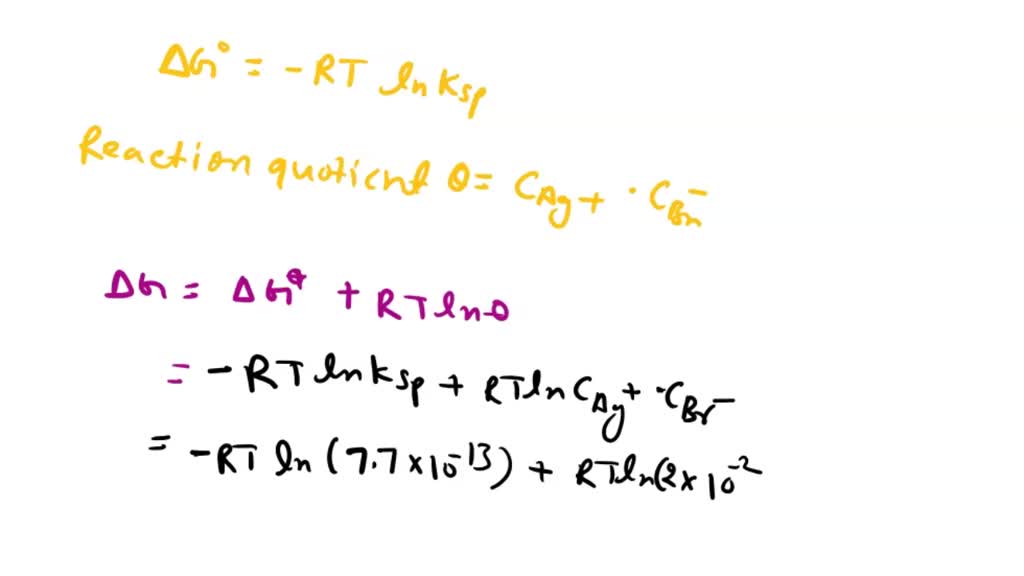 ΔG° = -RT ln Ksp
Reaction quotient θ = C_Ag+ · C_Br-
ΔG = ΔG° + RT ln θ
= -RT ln Ksp + RT ln C_Ag+ · C_Br-
= -RT ln (7.7 × 10^-13) + RT ln(2 × 10^-2